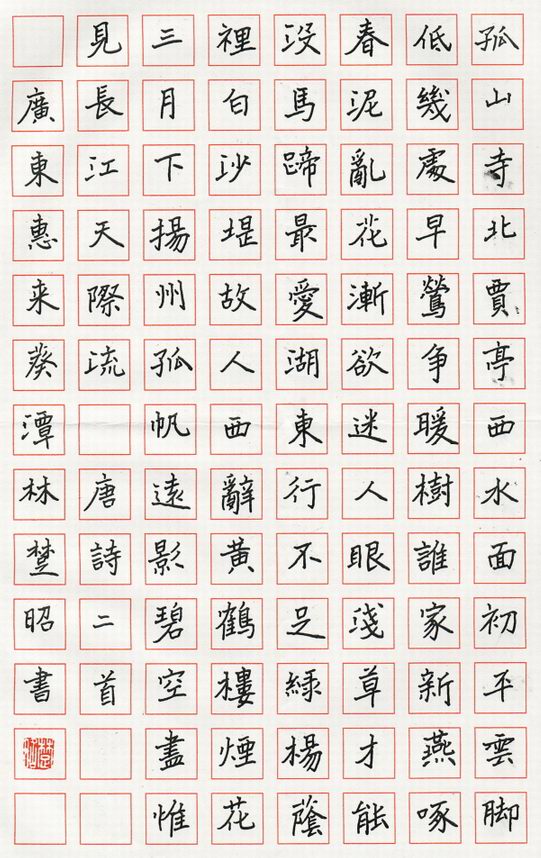 孤山寺北賈亭西水面初平雲脚
低幾處早鶯争暖樹誰家新燕啄
春泥亂花漸欲迷人眼淺草才能
没馬蹄最愛湖東行不足緑楊蔭
裡白沙堤故人西辭黄鶴樓煙花
三月下揚州孤帆遠影碧空盡惟
見長江天際流 唐詩二首
廣東惠来葵潭林楚昭書